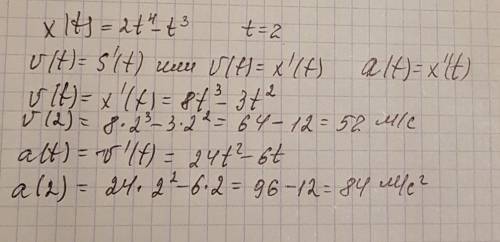 x|t| = 2t⁴ - t³ t = 2
v(t) = S'(t) или v(t) = x'(t) a(t) = x''(t)
v(t) = x'(t) = 8t³ - 3t²
v(2) = 8·2³ - 3·2² = 64 - 12 = 52 м/с
a(t) = v'(t) = 24t² - 6t
a(2) = 24·2² - 6·2 = 96 - 12 = 84 м/с²